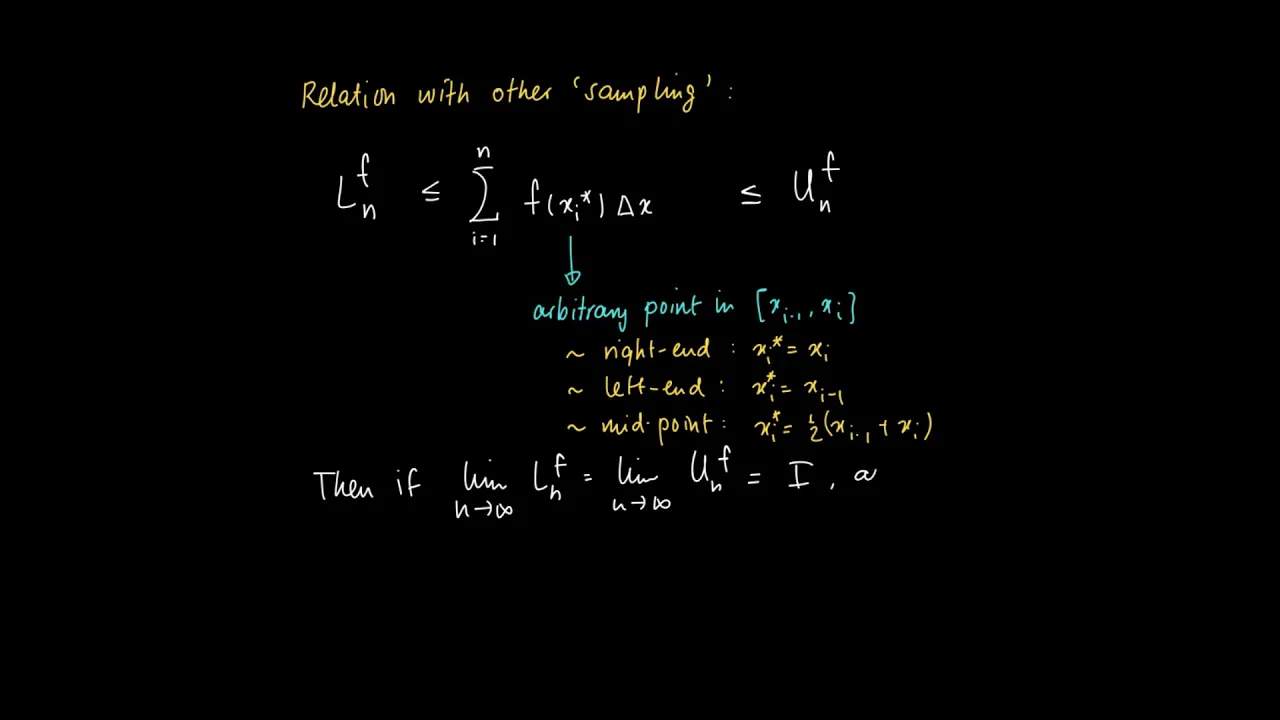 Relation with other 'sampling' :
L_n^f ≤ ∑_{i=1}^n f(x_i*) Δx ≤ U_n^f
↓
arbitrary point in [x_{i-1}, x_i]
~ right-end : x_i* = x_i
~ left-end : x_i* = x_{i-1}
~ mid-point : x_i* = ½(x_{i-1} + x_i)
Then if lim_{n→∞} L_n^f = lim_{n→∞} U_n^f = I, a